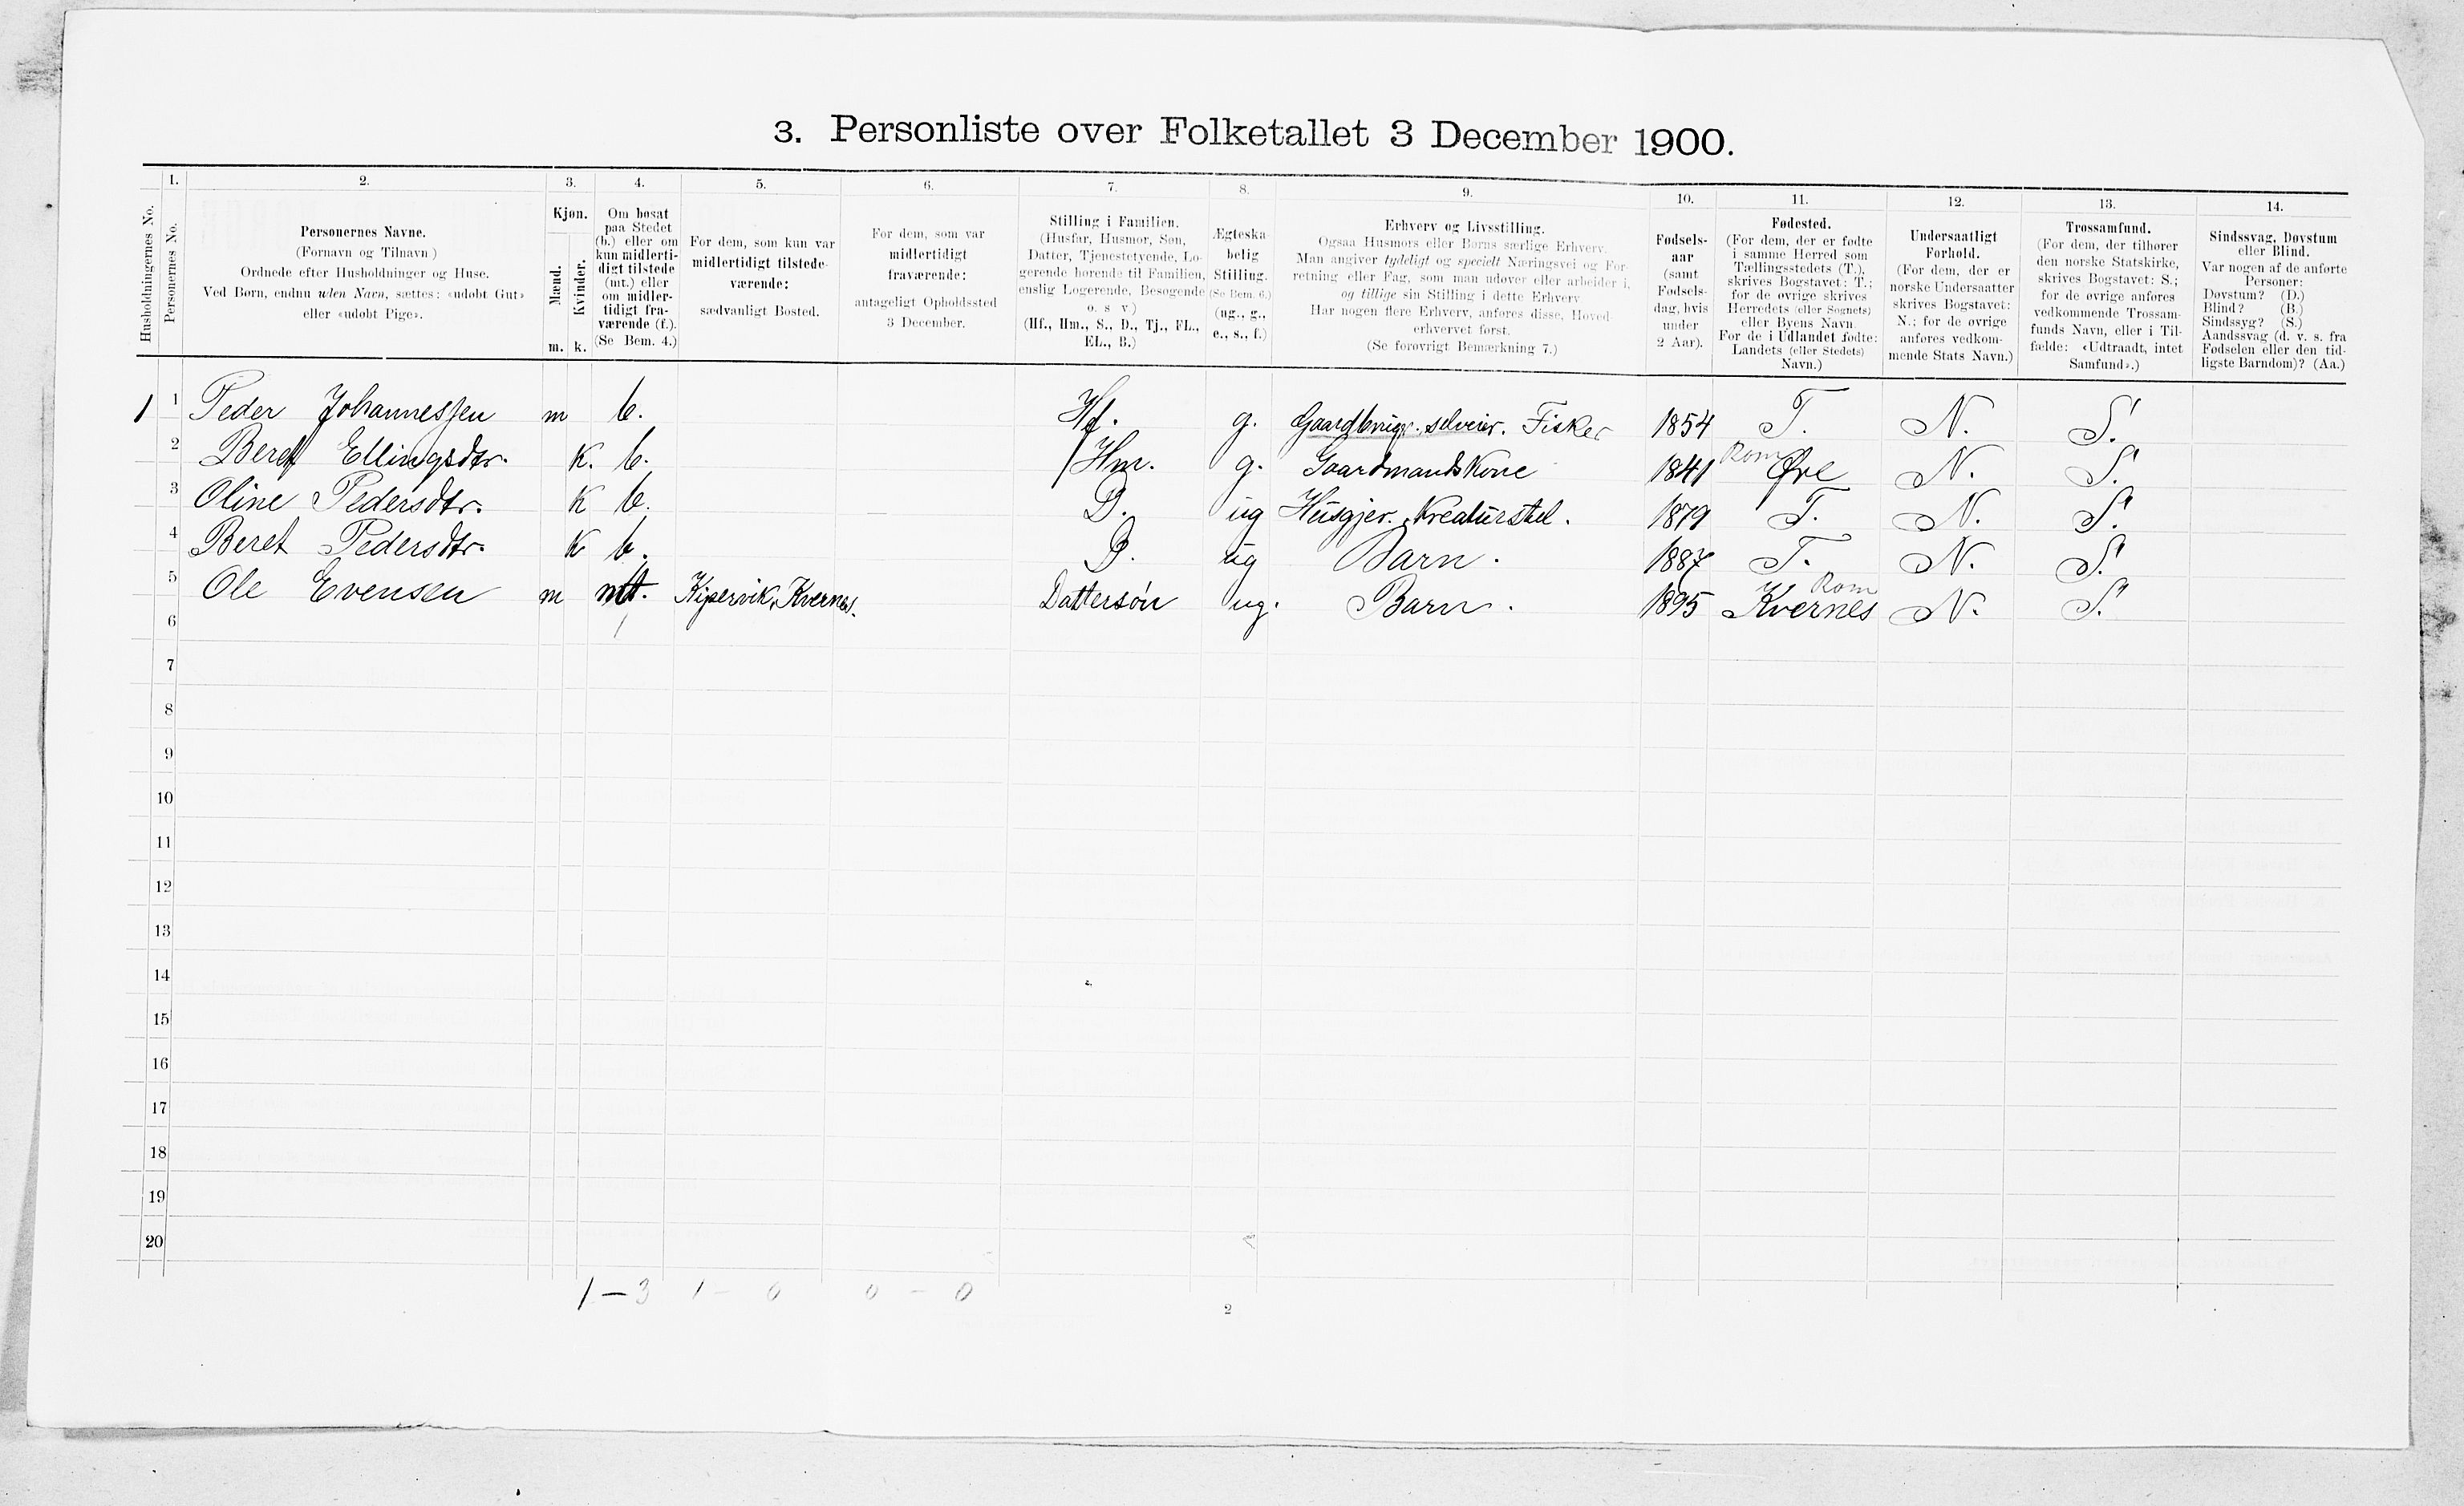 3. Personliste over Folketallet 3 December 1900.
Husholdningernes No.
1.
Personernes No.
2.
Personernes Navne.
(Fornavn og Tilnavn)
Ordnede efter Husholdninger og Huse.
Ved Børn, endnu uden Navn, sættes: «udøbt Gut»
eller «udøbt Pige».
3.
Kjøn.
Mænd.
Kvinder.
m. k.
4.
Om bosat
paa Stedet
(b.) eller om
kun midlerti-
digt tilstede
(mt.) eller
om midler-
tidigt fra-
værende (f.).
(Se Bem. 4.)
5.
For dem, som kun var
midlertidigt tilstede-
værende:
sædvanligt Bosted.
6.
For dem, som var
midlertidigt
fraværende:
antageligt Opholdssted
3 December.
7.
Stilling i Familien.
(Husfar, Husmor, Søn,
Datter, Tjenestetyende, Lo-
gerende hørende til Familien,
enslig Logerende, Besøgende
o. s. v.)
(Hf., Hm., S., D., Tj., FL.,
EL., B.)
8.
Ægteska-
belig
Stilling.
(Se Bem. 6.)
(ug., g.,
e., s., f.)
9.
Erhverv og Livsstilling.
Ogsaa Husmors eller Børns særlige Erhverv.
Man angiver tydeligt og specielt Næringsvei og For-
retning eller Fag, som man udøver eller arbeider i,
og tillige sin Stilling i dette Erhverv
Har nogen flere Erhverv, anføres disse, Hoved-
erhvervet først.
(Se forøvrigt Bemærkning 7.)
10.
Fødsels-
aar
(samt
Fødsels-
dag, hvis
under
2 Aar).
11.
Fødested.
(For dem, der er fødte
i samme Herred som
Tællingsstedets (T.),
skrives Bogstavet: T.;
for de øvrige skrives
Herredets (eller Sognets)
eller Byens Navn.
For de i Udlandet fødte:
Landets (eller Stedets)
Navn.)
12.
Undersaatligt
Forhold.
(For dem, der er
norske Undersaatter
skrives Bogstavet:
N.; for de øvrige
anføres vedkom-
mende Stats Navn.)
13.
Trossamfund.
(For dem, der tilhører
den norske Statskirke,
skrives Bogstavet: S.;
for de øvrige anføres
vedkommende Trossam-
funds Navn, eller i Til-
fælde: «Udtraadt, intet
Samfund».)
14.
Sindssvag, Døvstum
eller Blind.
Var nogen af de anførte
Personer:
Døvstum? (D.)
Blind? (B.)
Sindssyg? (S.)
Aandssvag (d. v. s. fra
Fødselen eller den tid-
ligste Barndom)? (Aa.)
1 1 Peder Johannessen m b. Hf. g. Gaardbruger. selveier. Fisker 1854 T. N. S.
2 Beret Ellingsdtr. K. b. Hm. g. Gaardmands Kone 1841 Rom Øre N. S.
3 Oline Pedersdtr. K b. D. ug Husgjer. Kreaturstel. 1879 T. N. S.
4 Beret Pedersdtr. K b. D. ug Barn. 1887 T. N. S.
5 Ole Evensen m mt. Kipervik, Kvernes. Dattersøn ug. Barn. 1895 Kvernes Rom N. S.
6
7
8
9
10
11
12
13
14
15
16
17
18
19
20
1 – 3 1 – 0 0 – 0
2